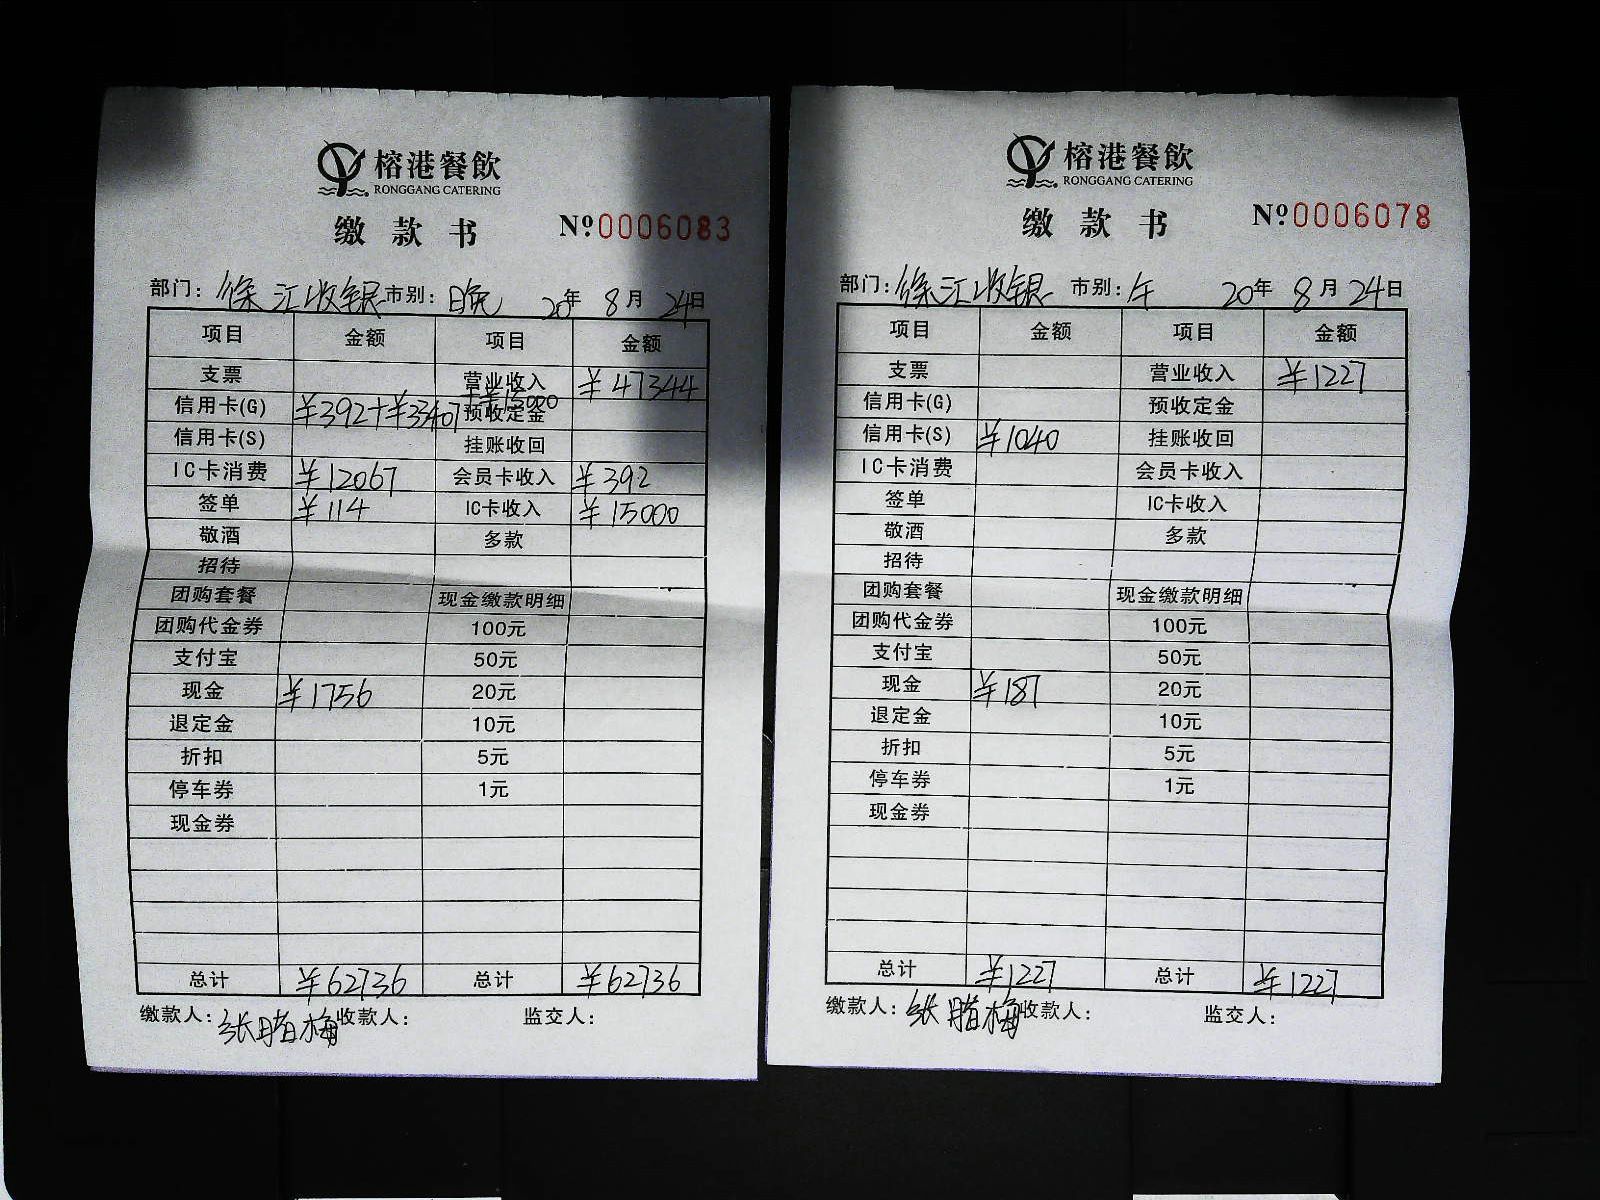 榕港餐飲
RONGGANG CATERING
缴款书 №0006083
部门：徐江收银 市别：晚 20年8月24日
项目 金额 项目 金额
支票 营业收入 ¥47344
信用卡(G) ¥392+¥33407+¥15000 预收定金
信用卡(S) 挂账收回
IC卡消费 ¥12067 会员卡收入 ¥392
签单 ¥114 IC卡收入 ¥15000
敬酒 多款
招待
团购套餐 现金缴款明细
团购代金券 100元
支付宝 50元
现金 ¥1756 20元
退定金 10元
折扣 5元
停车券 1元
现金券
总计 ¥62736 总计 ¥62736
缴款人：张腊梅 收款人： 监交人：
榕港餐飲
RONGGANG CATERING
缴款书 №0006078
部门：徐江收银 市别：午 20年8月24日
项目 金额 项目 金额
支票 营业收入 ¥1227
信用卡(G) 预收定金
信用卡(S) ¥1040 挂账收回
IC卡消费 会员卡收入
签单 IC卡收入
敬酒 多款
招待
团购套餐 现金缴款明细
团购代金券 100元
支付宝 50元
现金 ¥187 20元
退定金 10元
折扣 5元
停车券 1元
现金券
总计 ¥1227 总计 ¥1227
缴款人：张腊梅 收款人： 监交人：